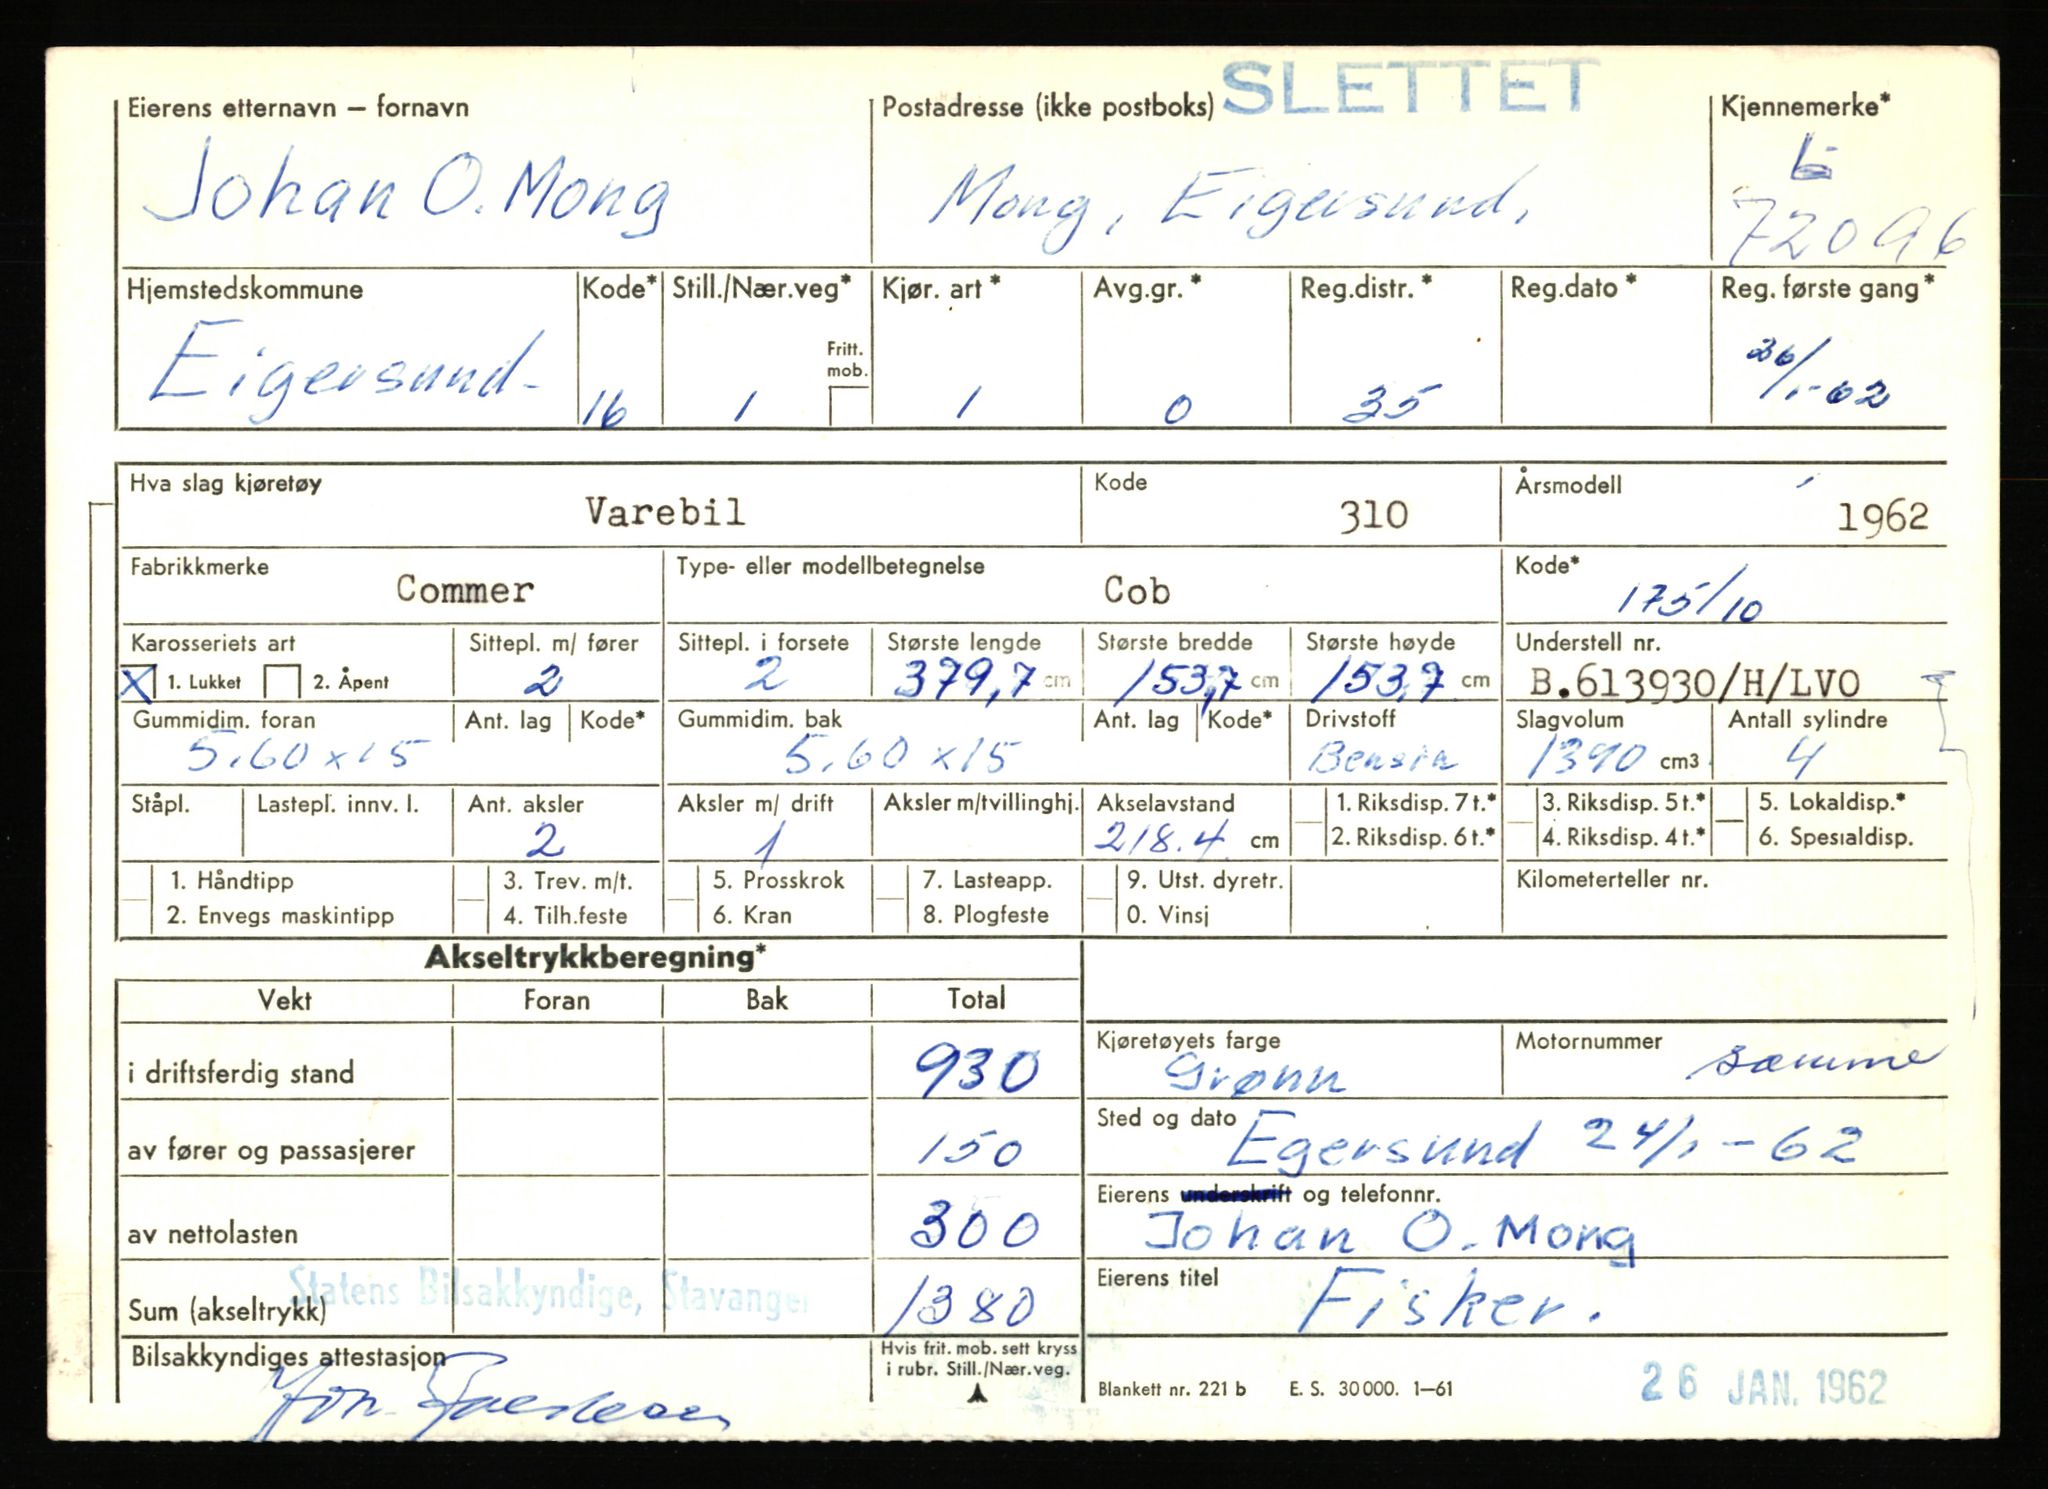 SLETTET
Eierens etternavn – fornavn Postadresse (ikke postboks) Kjennemerke*
Johan O. Mong Mong, Eigersund, L- 72096
Hjemstedskommune Kode* Still./Nær.veg* Kjør. art * Avg.gr. * Reg.distr. * Reg.dato * Reg. første gang *
Fritt. mob.
Eigersund- 16 1 1 0 35 26/1-62
Hva slag kjøretøy Kode Årsmodell
Varebil 310 1962
Fabrikkmerke Type- eller modellbetegnelse Kode*
Commer Cob 175/10
Karosseriets art Sittepl. m/ fører Sittepl. i forsete Største lengde Største bredde Største høyde Understell nr.
X 1. Lukket 2. Åpent 2 2 379,7 cm 153,7 cm 153,7 cm B.613930/H/LVO
Gummidim. foran Ant. lag Kode* Gummidim. bak Ant. lag Kode* Drivstoff Slagvolum Antall sylindre
5.60 x 15 5.60 x 15 Bensin 1390 cm3 4
Ståpl. Lastepl. innv. l. Ant. aksler Aksler m/ drift Aksler m/tvillinghj. Akselavstand 1. Riksdisp. 7 t.* 3. Riksdisp. 5 t.* 5. Lokaldisp.*
2 1 218.4 cm 2. Riksdisp. 6 t.* 4. Riksdisp. 4 t.* 6. Spesialdisp.
1. Håndtipp 3. Trev. m/t. 5. Prosskrok 7. Lasteapp. 9. Utst. dyretr. Kilometerteller nr.
2. Envegs maskintipp 4. Tilh.feste 6. Kran 8. Plogfeste 0. Vinsj
Akseltrykkberegning*
Vekt Foran Bak Total
i driftsferdig stand 930
Kjøretøyets farge Motornummer
Grønn samme
av fører og passasjerer 150
Sted og dato Egersund 24/1-62
av nettolasten 300
Eierens underskrift og telefonnr.
Johan O. Mong
Statens Bilsakkyndige, Stavanger
Sum (akseltrykk) 1380
Eierens titel Fisker.
Bilsakkyndiges attestasjon
Hvis frit. mob. sett kryss
i rubr. Still./Nær.veg.
Blankett nr. 221 b E. S. 30 000. 1–61
26 JAN. 1962